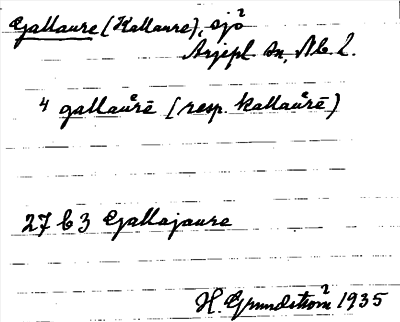 Gallaure (Kallaure), sjö
Arjepl. sn, Nb. l.
4 gallau̇̄rē (resp. kallau̇̄rē)
27 b 3 Gallajaure
H. Grundström 1935